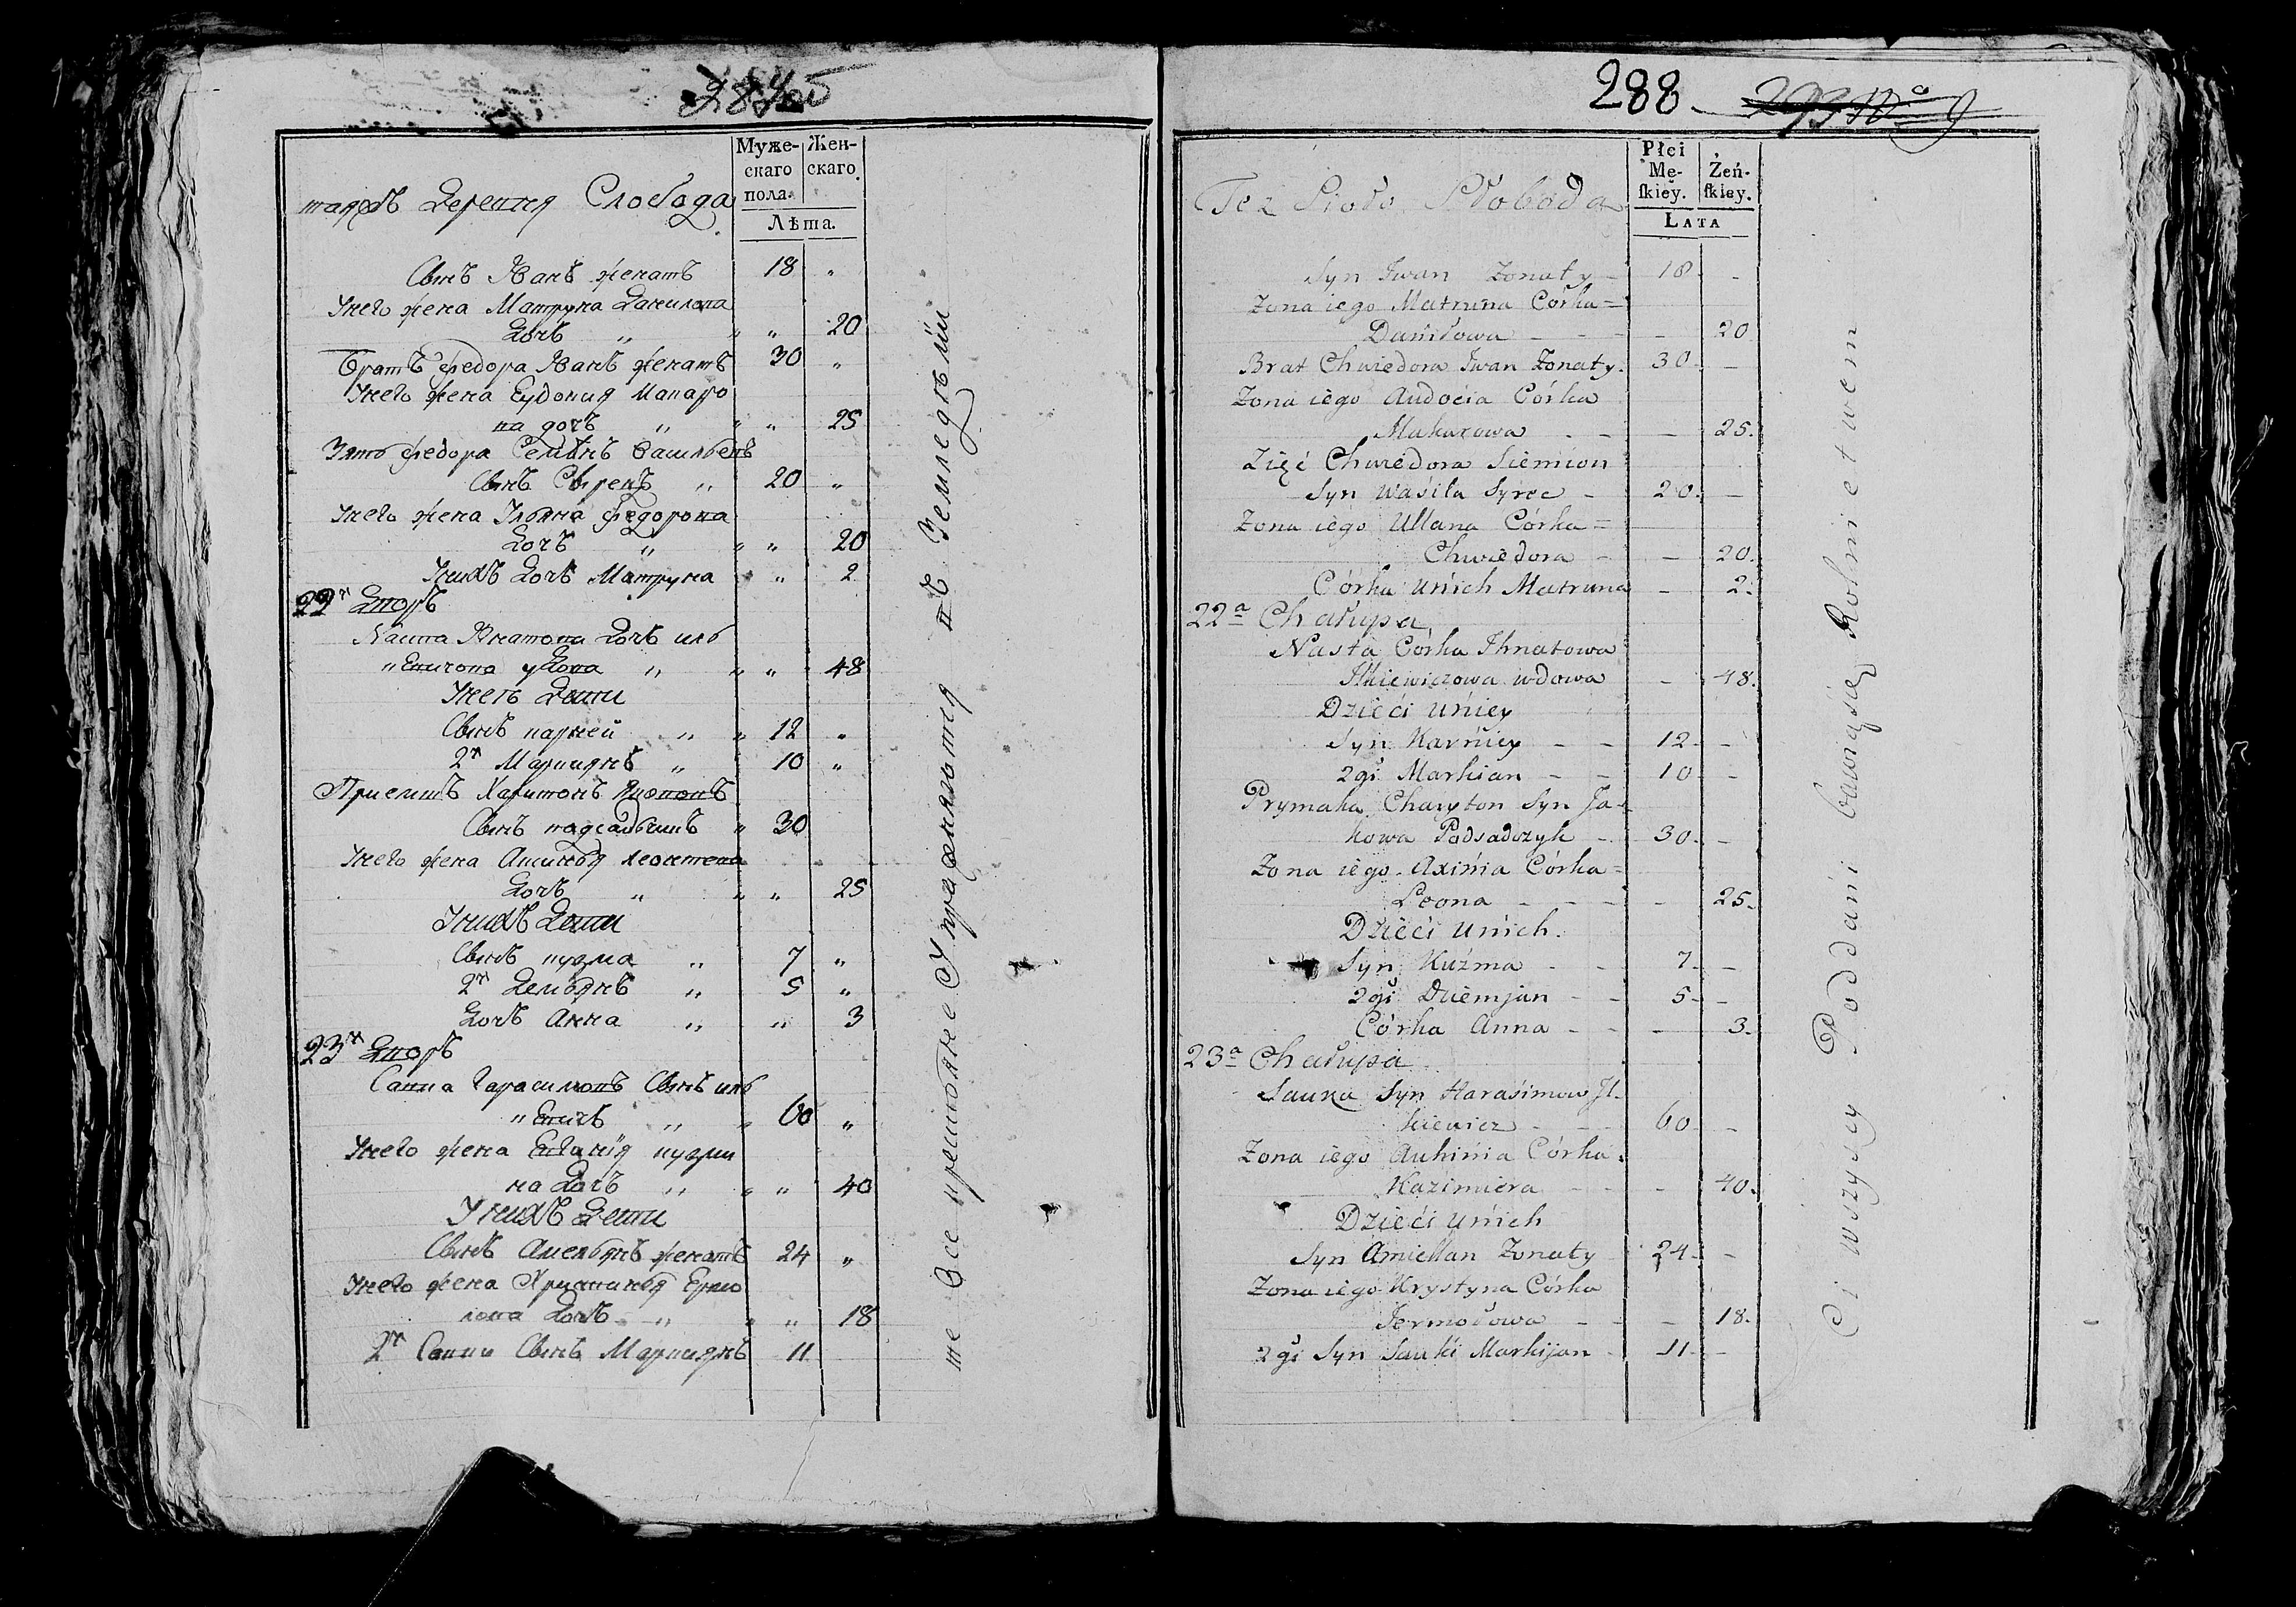 287об
Муже-
скаго
пола.
Жен-
скаго.
Лѣта.
таяжъ Деревня Слобода
Сынъ Иванъ женатъ 18 „
У него жена Матруна Данилова
Дочь „ „ „ 20
Братъ Федора Иванъ женатъ 30 „
У него жена Еудокия Макаро
ва дочь „ „ „ 25
Зять Федора Семіонъ Васильевъ
Сынъ Сырецъ „ 20 „
У него жена Ульяна Федорова
Дочь „ „ „ 20
У нихъ Дочь Матруна „ „ 2
22й Дворъ
Наста Игнатова Дочь иль
„Евичова удова „ „ „ 48
У неѣ Дети
Сынъ карней „ „ 12 „
2й Маркиянъ „ 10 „
Приемшъ Харитонъ Якововъ
Сынъ падсадчикъ „ 30
У него жена Аксинья леонтева
Дочь „ „ „ 25
У нихъ Дети
Сынъ кузма „ 7 „
2й Демьянъ „ 5 „
Дочь Анна „ „ 3
23й Дворъ
Савка Гарасимовъ Сынъ иль
„Евичь „ „ 60 „
У него жена Евгания кузми
на Дочь „ „ „ 40
У нихъ Дети
Сынъ Амельянъ женатъ 24 „
У него жена Христинья Ермо
лова Дочь „ „ „ 18
2й Савки Сынъ Маркиянъ 11
те Все крестьяне Упражняются въ Земледѣлии
288
Płci
Mę-
skiey.
Żeń-
skiey.
LATA
Też Sioło Słoboda
Syn Iwan Żonaty - 18 - -
Żona iego Matruna Córka =
Daniłowa - - - - 20
Brat Chwiedora Iwan Żonaty - 30 - -
Żona iego Audocia Córka
Makarowa - - - 25 -
Zięć Chwiedora Siemion
Syn Wasila Syrec - 20 - -
Żona iego Ullana Córka =
Chwiedora - - 20 -
Córka u nich Matruna - 2 -
22a Chałupa
Nasta Córka Ihnatowa
Ilkiewiczowa wdowa - 48 -
Dzieći u niey
Syn Karniey - - 12 - -
2gi Markian - - 10 - -
Prymaka Charyton Syn Ja-
kowa Podsadczyk - 30 - -
Żona iego Axinia Córka =
Leona - - - - 25 -
Dzieći u nich
Syn Kuźma - - 7 - -
2gi Dziemjan - - 5 - -
Córka Anna - - - 3 -
23a Chałupa
Sauka Syn Harasimow Il-
kiewicz - - - 60 -
Żona iego Auhinia Córka
Kazimiera - - - 40 -
Dzieći u nich
Syn Amiellan Żonaty 24 - -
Żona iego Krystyna Córka
Jermołowa - - - 18 -
2gi Syn Sauki Markijan - 11 - -
Ci wszyscy Poddani bawią się Rolnictwem